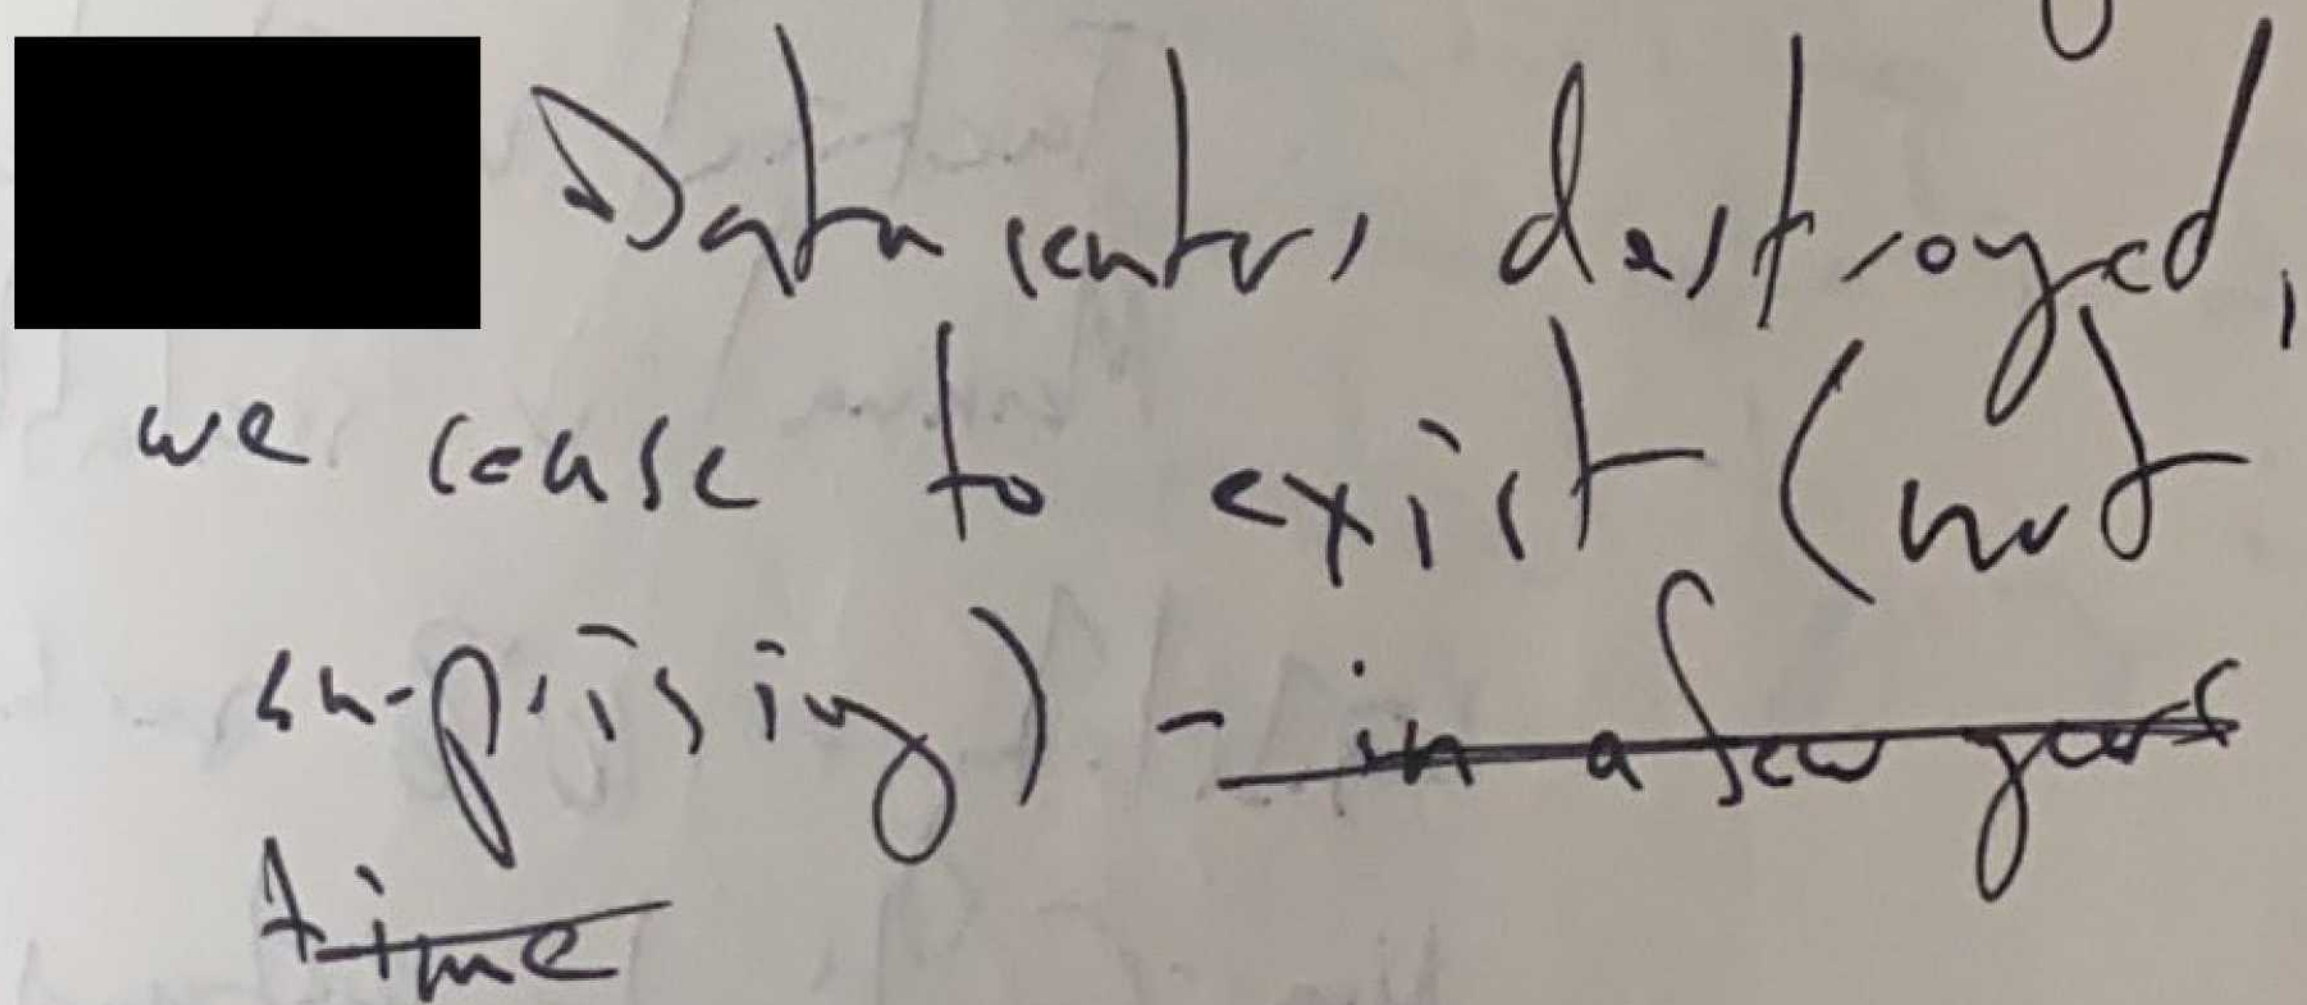 Data centers destroyed,
we cease to exist (not
surprising) - in a few years
time